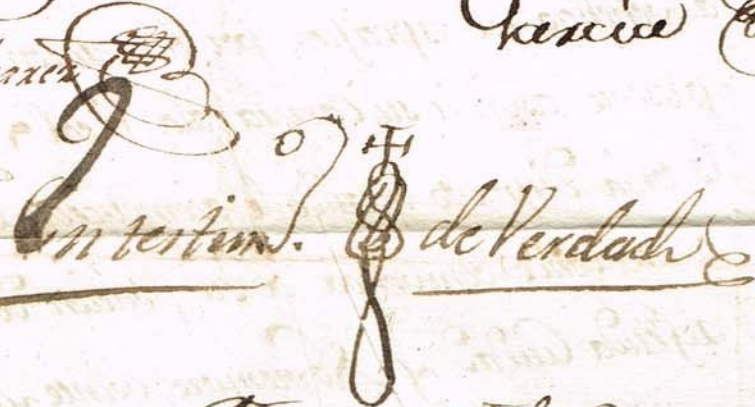 Garcia
En testimo. de Verdad